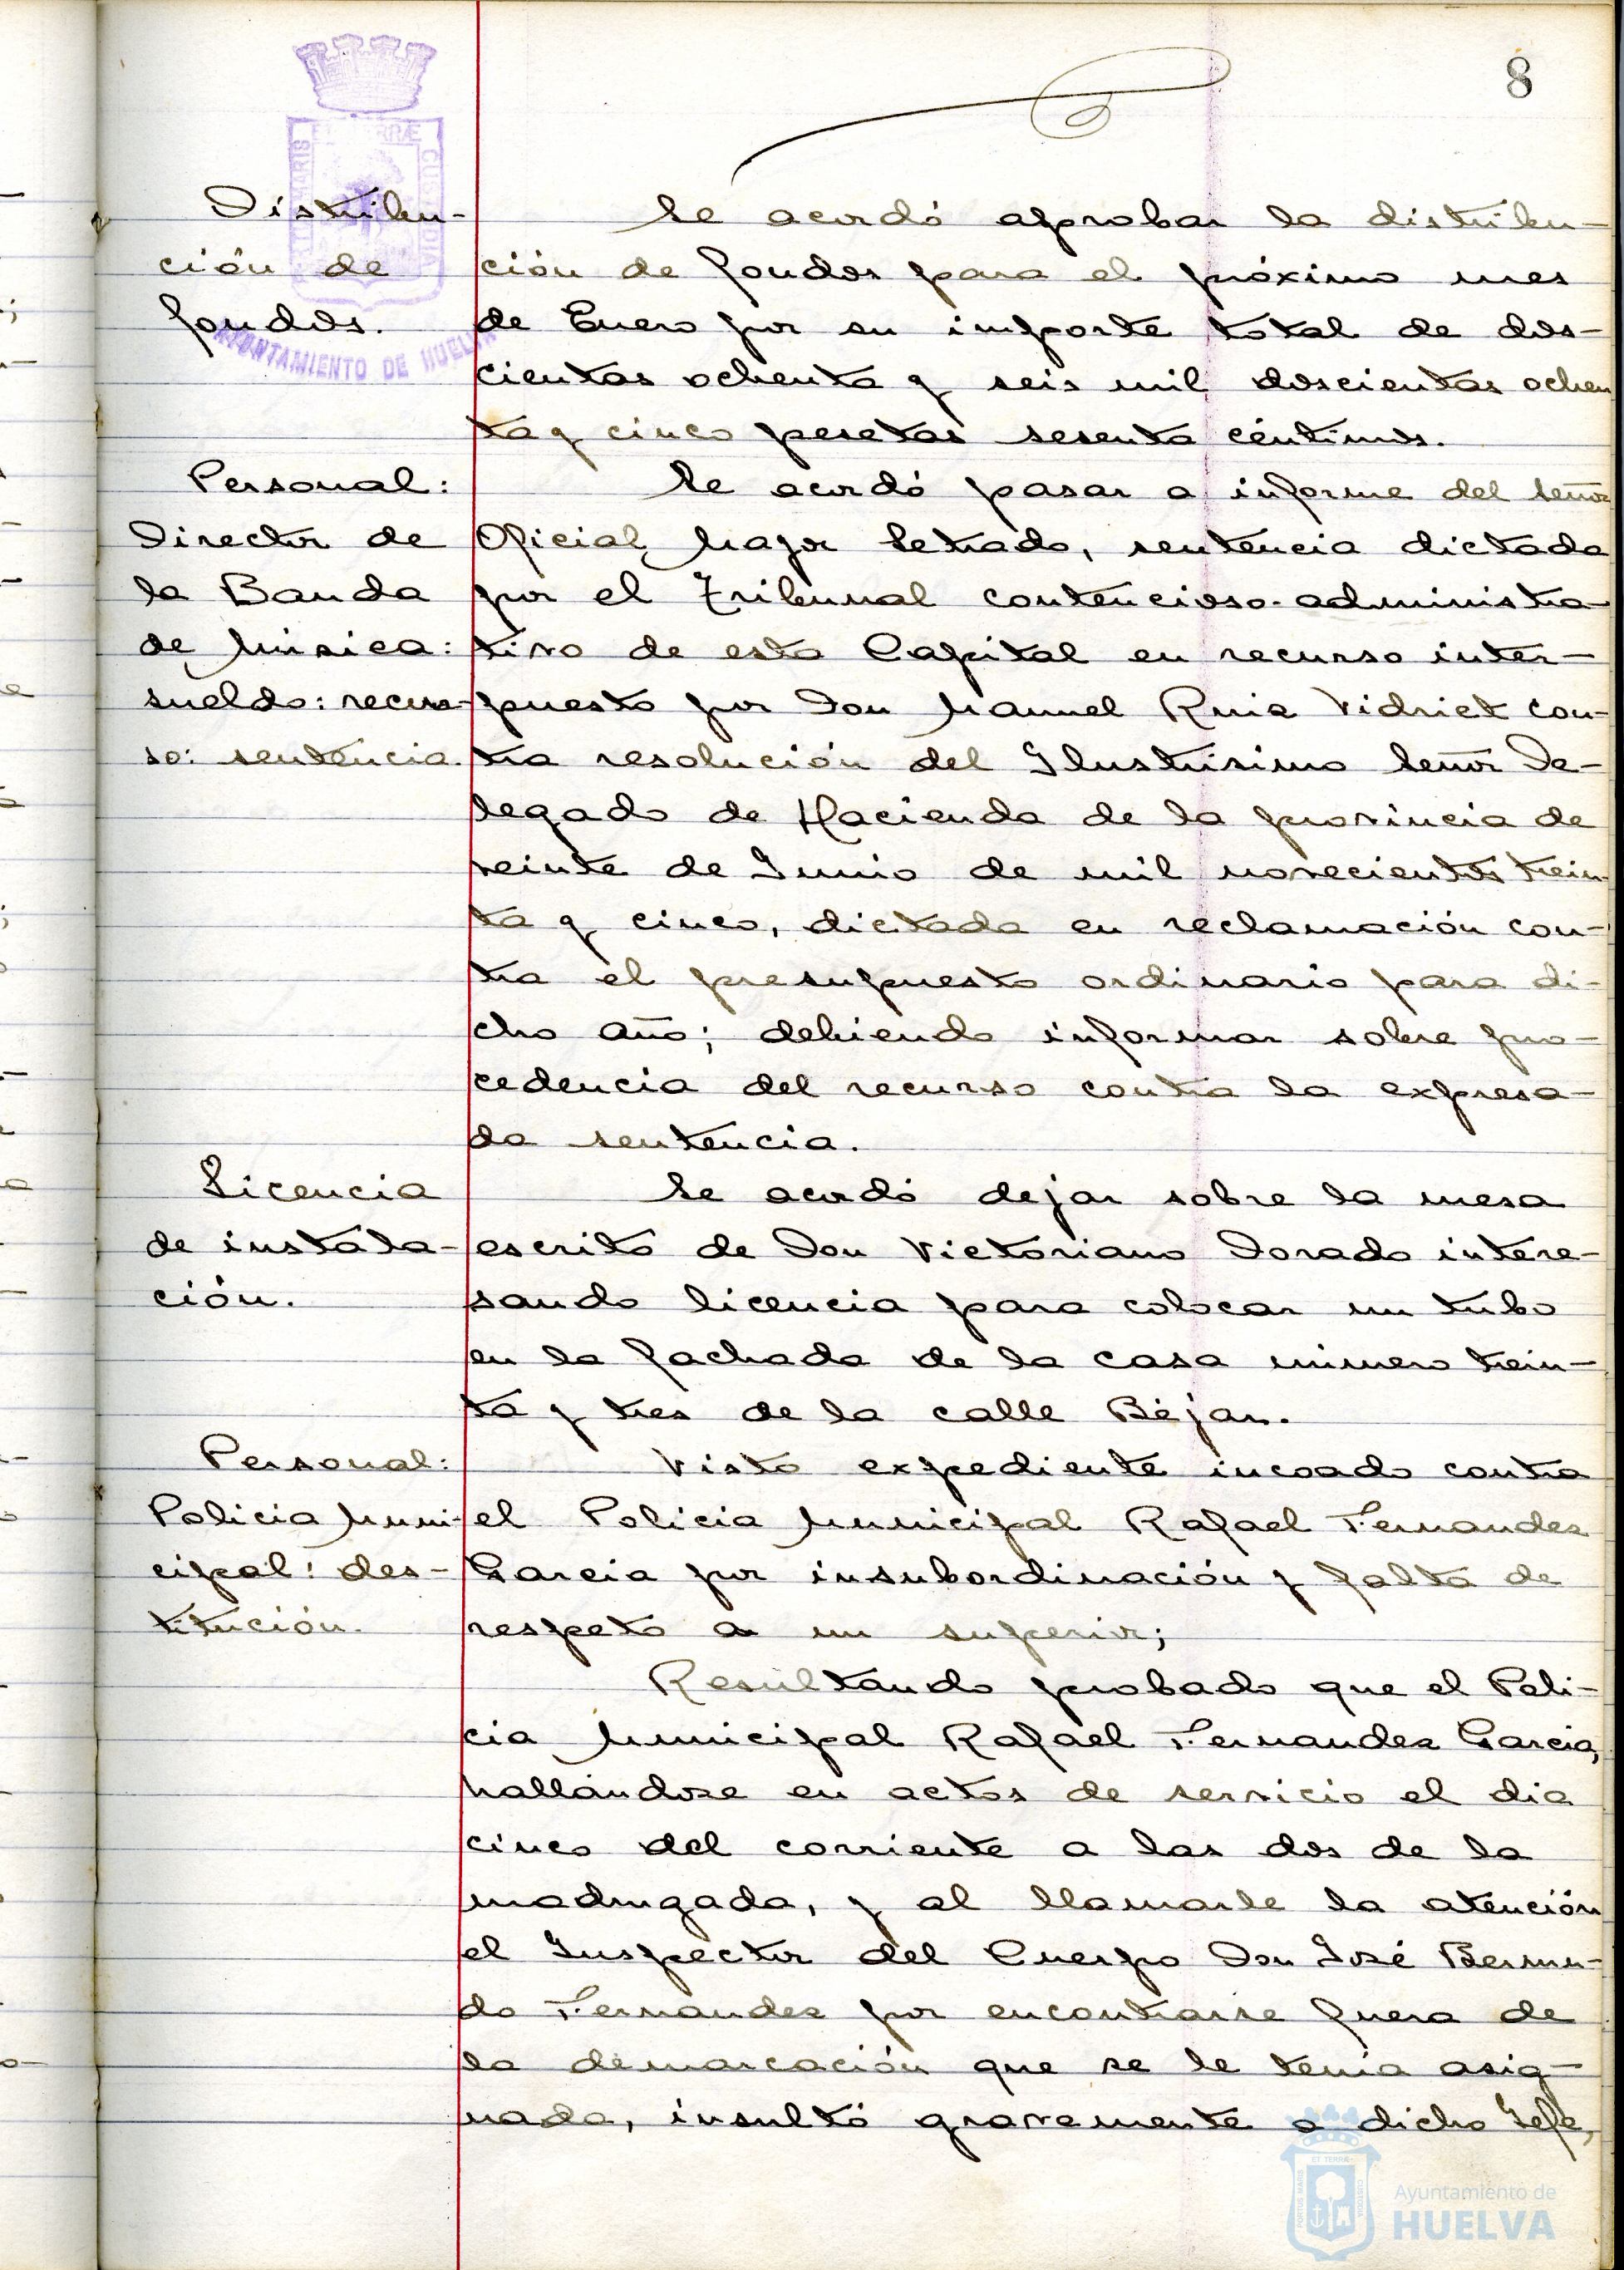 8
Distribu-
ción de
fondos.
Se acordó aprobar la distribu-
ción de fondos para el próximo mes
de Enero por su importe total de dos-
cientas ochenta y seis mil doscientas ochen
ta y cinco pesetas sesenta céntimos.
Personal:
Director de
la Banda
de Música:
sueldo: recur-
so: sentencia.
Se acordó pasar a informe del Señor
Oficial Mayor Letrado, sentencia dictada
por el Tribunal contencioso-administra-
tivo de esta Capital en recurso inter-
puesto por Don Manuel Ruiz Vidriet con-
tra resolución del Ilustrísimo Señor De-
legado de Hacienda de la provincia de
veinte de Junio de mil novecientos trein
ta y cinco, dictada en reclamación con-
tra el presupuesto ordinario para di-
cho año; debiendo informar sobre pro-
cedencia del recurso contra la expresa-
da sentencia.
Licencia
de instala-
ción.
Se acordó dejar sobre la mesa
escrito de Don Victoriano Dorado intere-
sando licencia para colocar un tubo
en la fachada de la casa número trein-
ta y tres de la calle Béjar.
Personal:
Policia Muni-
cipal: des-
titución.
Visto expediente incoado contra
el Policia Municipal Rafael Fernandez
Garcia por insubordinación y falta de
respeto a un superior;
Resultando probado que el Poli-
cia Municipal Rafael Fernandez Garcia,
hallándose en actos de servicio el dia
cinco del corriente a las dos de la
madrugada, y al llamarle la atención
el Inspector del Cuerpo Don José Bermu-
do Fernandez por encontrarse fuera de
la demarcación que se le tenia asig-
nada, insultó gravemente a dicho Jefe,
AYUNTAMIENTO DE HUELVA
Ayuntamiento de
HUELVA